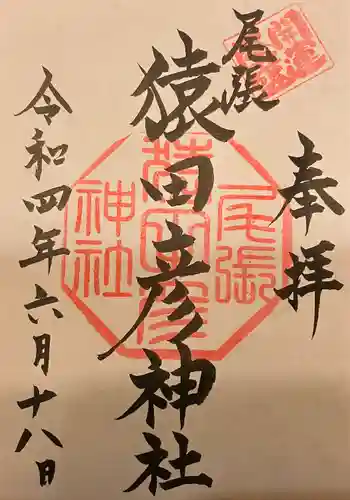 奉拝
尾張
猿田彦神社
令和四年六月十八日
尾張
猿田彦
神社
開運